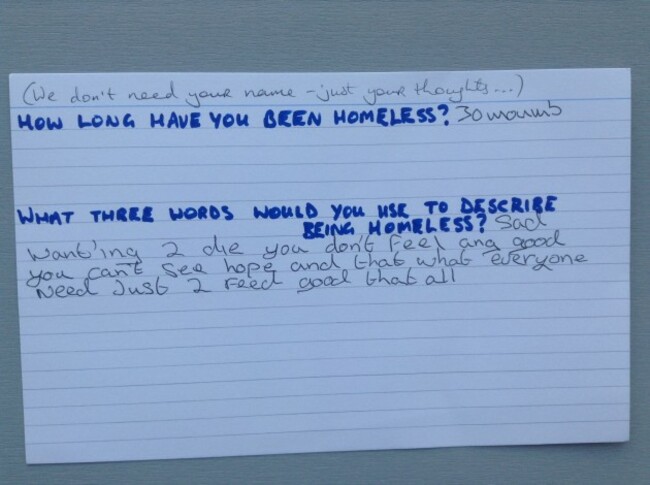 (We don't need your name - just your thoughts...)
HOW LONG HAVE YOU BEEN HOMELESS? 30
WHAT THREE WORDS WOULD YOU USE TO DESCRIBE
BEING HOMELESS? Sad
Want'ing 2 die you don't feel any good
you can't see hope and that what everyone
Need Just 2 feel good that all